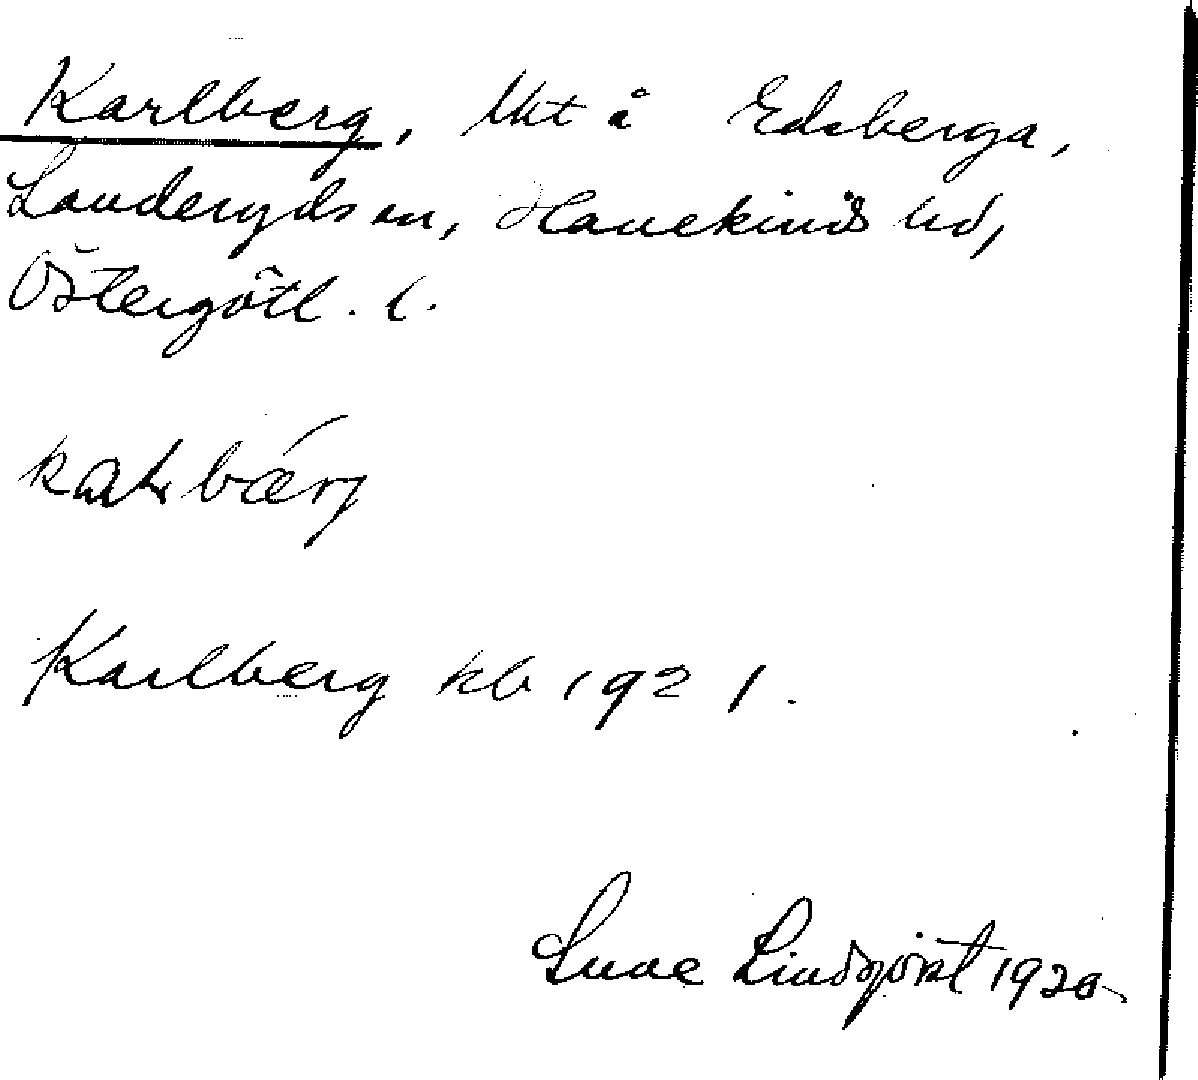 Karlberg, lht å Edsberga,
Landeryds sn, Hanekinds hd,
Östergötl. l.
Karlberg kb 1921.
Sune Lindqvist 192